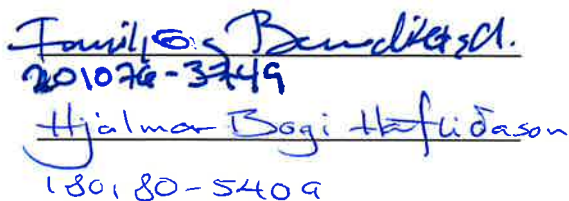 Benediktsd.
201076-3749
Hjálmar Bogi Hafliðason
180180-5409